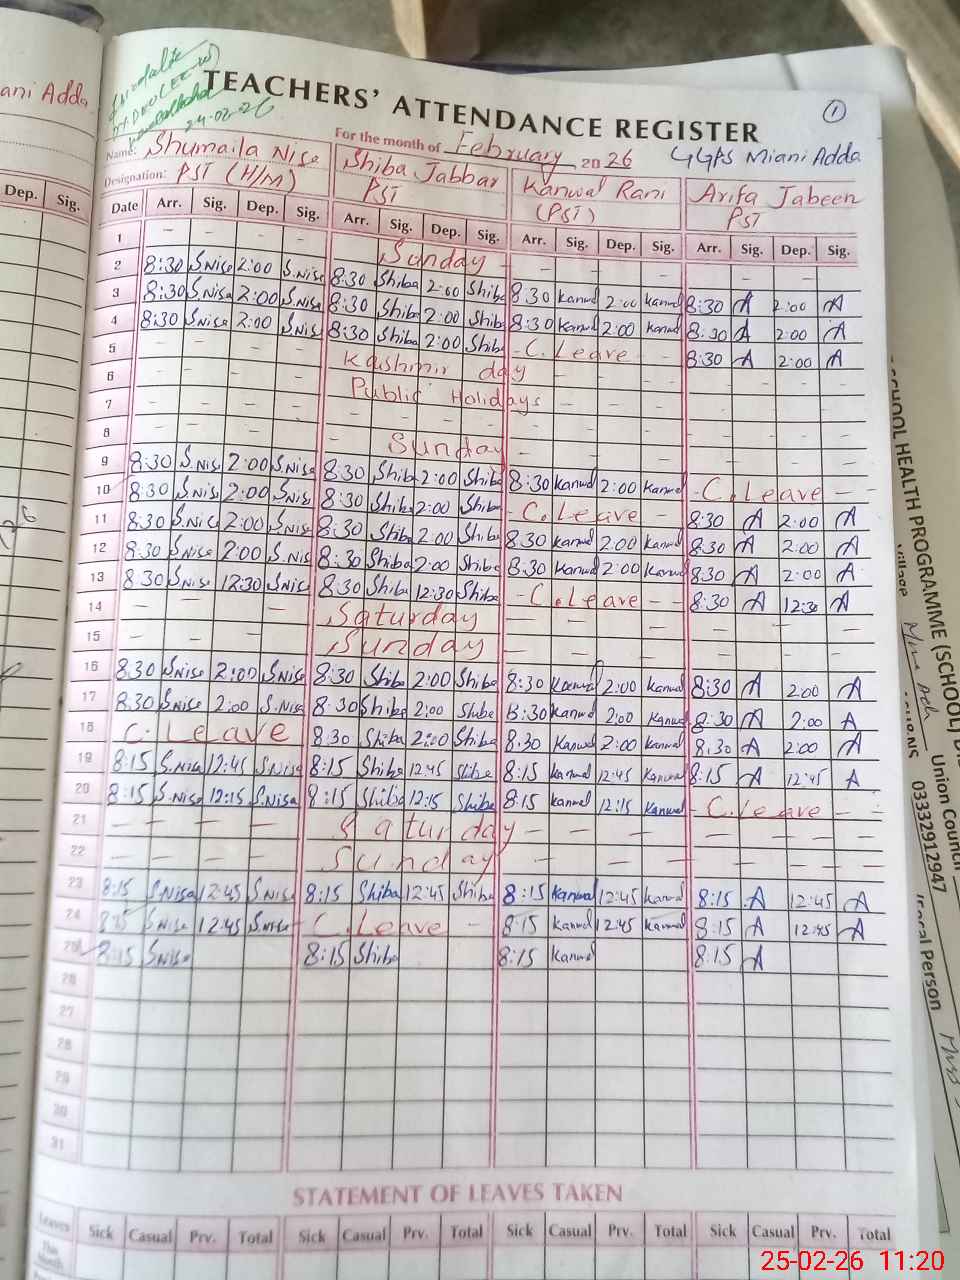 ani Adda
TEACHERS' ATTENDANCE REGISTER
1
24-02-26
For the month of February 2026 GGPS Miani Adda
Name: Shumaila Nisa Shiba Jabbar Kanwal Rani Arifa Jabeen
Designation: PST (H/M) PST (PST) PST
Dep. Sig.
Date Arr. Sig. Dep. Sig. Arr. Sig. Dep. Sig. Arr. Sig. Dep. Sig. Arr. Sig. Dep. Sig.
1 - - - - Sunday - - - - - - - -
2 8:30 S.Nisa 2:00 S.Nisa 8:30 Shiba 2:00 Shiba 8:30 Kanwal 2:00 Kanwal 8:30 A 2:00 A
3 8:30 S.Nisa 2:00 S.Nisa 8:30 Shiba 2:00 Shiba 8:30 Kanwal 2:00 Kanwal 8:30 A 2:00 A
4 8:30 S.Nisa 2:00 S.Nisa 8:30 Shiba 2:00 Shiba - C.Leave - - 8:30 A 2:00 A
5 - - - - Kashmir day - - - - - - -
6 - - - - Public Holidays - - - - - - -
7 - - - - - - - - - - - -
8 - - - - Sunday - - - - - - - -
9 8:30 S.Nisa 2:00 S.Nisa 8:30 Shiba 2:00 Shiba 8:30 Kanwal 2:00 Kanwal - C.Leave -
10 8:30 S.Nisa 2:00 S.Nisa 8:30 Shiba 2:00 Shiba - C.Leave - - 8:30 A 2:00 A
11 8:30 S.Nisa 2:00 S.Nisa 8:30 Shiba 2:00 Shiba 8:30 Kanwal 2:00 Kanwal 8:30 A 2:00 A
12 8:30 S.Nisa 2:00 S.Nis 8:30 Shiba 2:00 Shiba 8:30 Kanwal 2:00 Kanwal 8:30 A 2:00 A
13 8:30 S.Nisa 12:30 S.Nisa 8:30 Shiba 12:30 Shiba - C.Leave - - 8:30 A 12:30 A
14 - - - Saturday - - - - - - - -
15 - - - Sunday - - - - - - - -
16 8:30 S.Nisa 2:00 S.Nisa 8:30 Shiba 2:00 Shiba 8:30 Kanwal 2:00 Kanwal 8:30 A 2:00 A
17 8:30 S.Nisa 2:00 S.Nisa 8:30 Shiba 2:00 Shiba 8:30 Kanwal 2:00 Kanwal 8:30 A 2:00 A
18 C. Leave 8:30 Shiba 2:00 Shiba 8:30 Kanwal 2:00 Kanwal 8:30 A 2:00 A
19 8:15 S.Nisa 12:45 S.Nisa 8:15 Shiba 12:45 Shiba 8:15 Kanwal 12:45 Kanwal 8:15 A 12:45 A
20 8:15 S.Nisa 12:15 S.Nisa 8:15 Shiba 12:15 Shiba 8:15 Kanwal 12:15 Kanwal - C.Leave - -
21 - - - - Saturday - - - - - - - -
22 - - - - Sunday - - - - - - - -
23 8:15 S.Nisa 12:45 S.Nisa 8:15 Shiba 12:45 Shiba 8:15 Kanwal 12:45 Kanwal 8:15 A 12:45 A
24 8:15 S.Nisa 12:45 S.Nisa C.Leave - 8:15 Kanwal 12:45 Kanwal 8:15 A 12:45 A
25 8:15 S.Nisa 8:15 Shiba 8:15 Kanwal 8:15 A
26
27
28
29
30
31
STATEMENT OF LEAVES TAKEN
Leaves Sick Casual Prv. Total Sick Casual Prv. Total Sick Casual Prv. Total Sick Casual Prv. Total
This Month
SCHOOL HEALTH PROGRAMME (SCHOOL)
Village Miani Adda Union Council
03332912947
Focal Person Miss
25-02-26 11:20